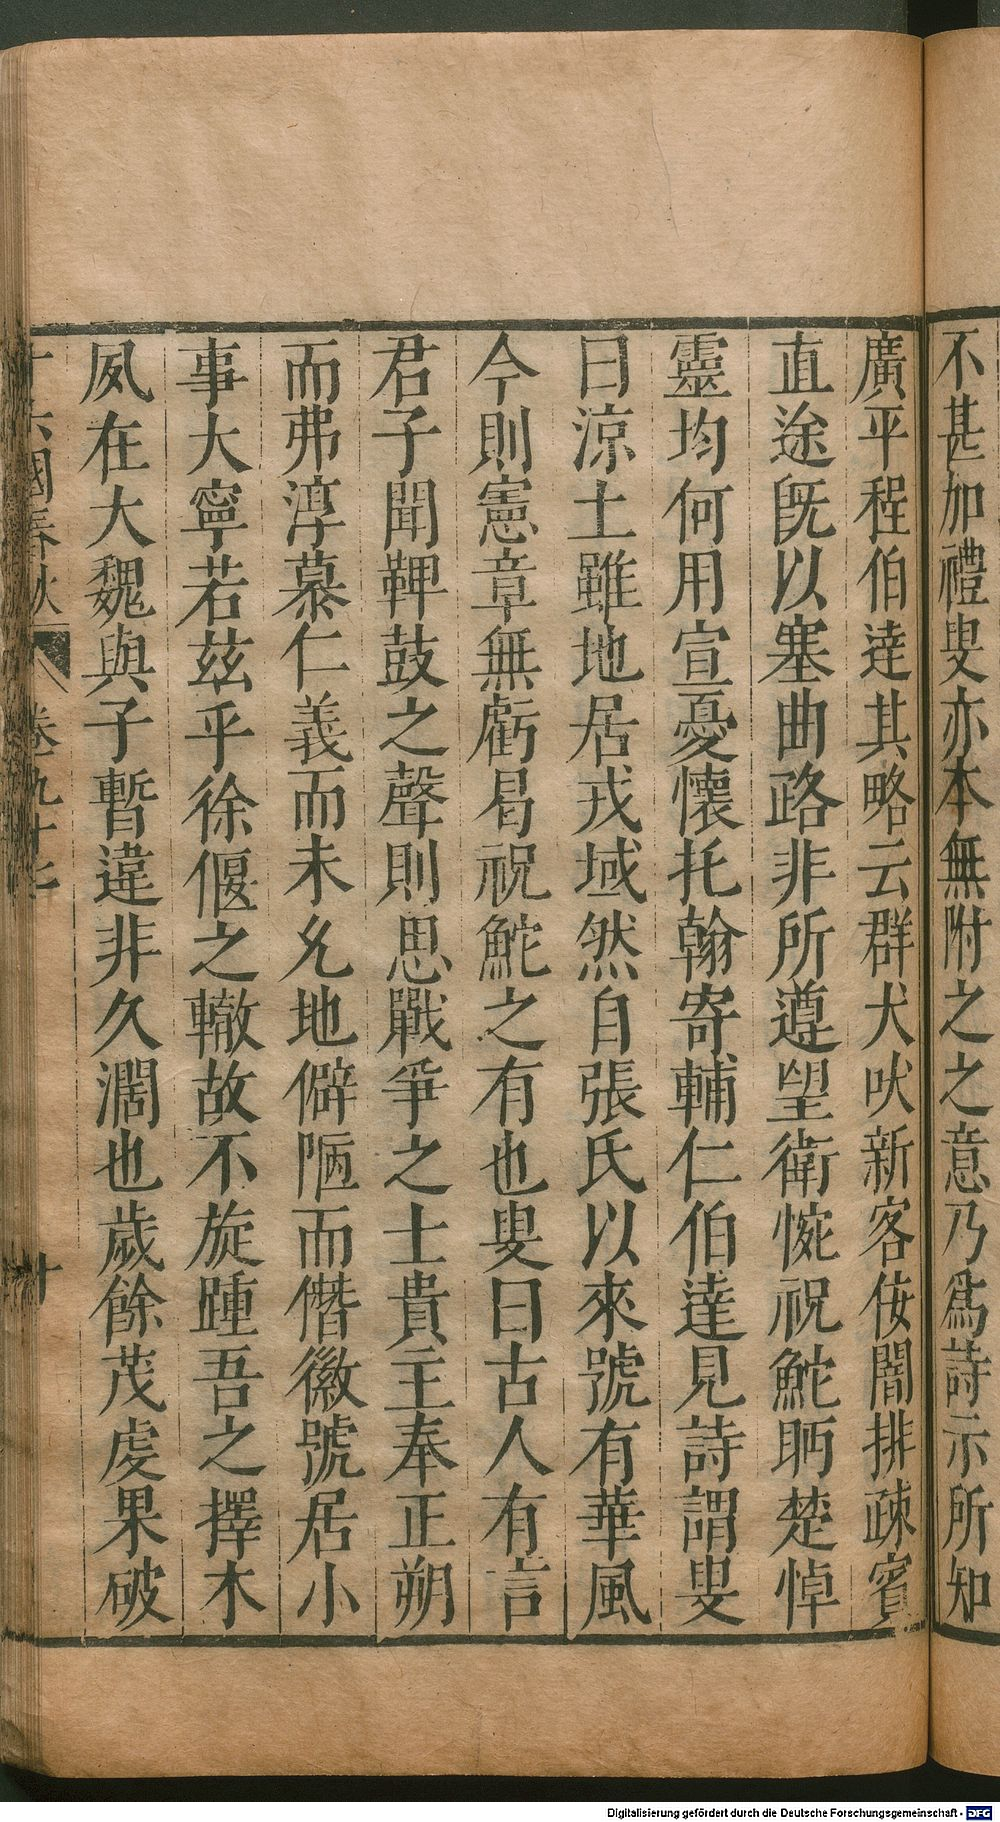 不甚加禮叟亦本無附之之意乃爲詩示所知
廣平程伯達其略云群犬吠新客佞闇排疎賓
直途旣以塞曲路非所遵望衛惋祝鮀眄楚悼
靈均何用宣憂懷托翰寄輔仁伯達見詩謂叟
曰涼土雖地居戎域然自張氏以來號有華風
今則憲章無虧曷祝鮀之有也叟曰古人有言
君子聞鞞鼓之聲則思戰爭之士貴主奉正朔
而弗淳慕仁義而未允地僻陋而僭徽號居小
事大寧若玆乎徐偃之轍故不旋踵吾之擇木
夙在大魏與子暫違非久濶也歲餘茂虔果破
十六國春秋 卷九十七 十
Digitalisierung gefördert durch die Deutsche Forschungsgemeinschaft - DFG